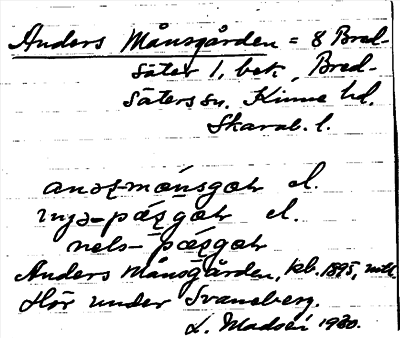 Anders Månsgården = 8 Bred-
säter 1, bek, Bred-
säters sn. Kinne hd.
Skarab. l.
anəʂ-månsgɑɽ el.
nyə-pæʂgɑɽ el.
nels-pæʂgɑɽ
Anders Månsgården, kb. 1895, mtl.
Hör under Svaneberg.
L. Madsén 1930.